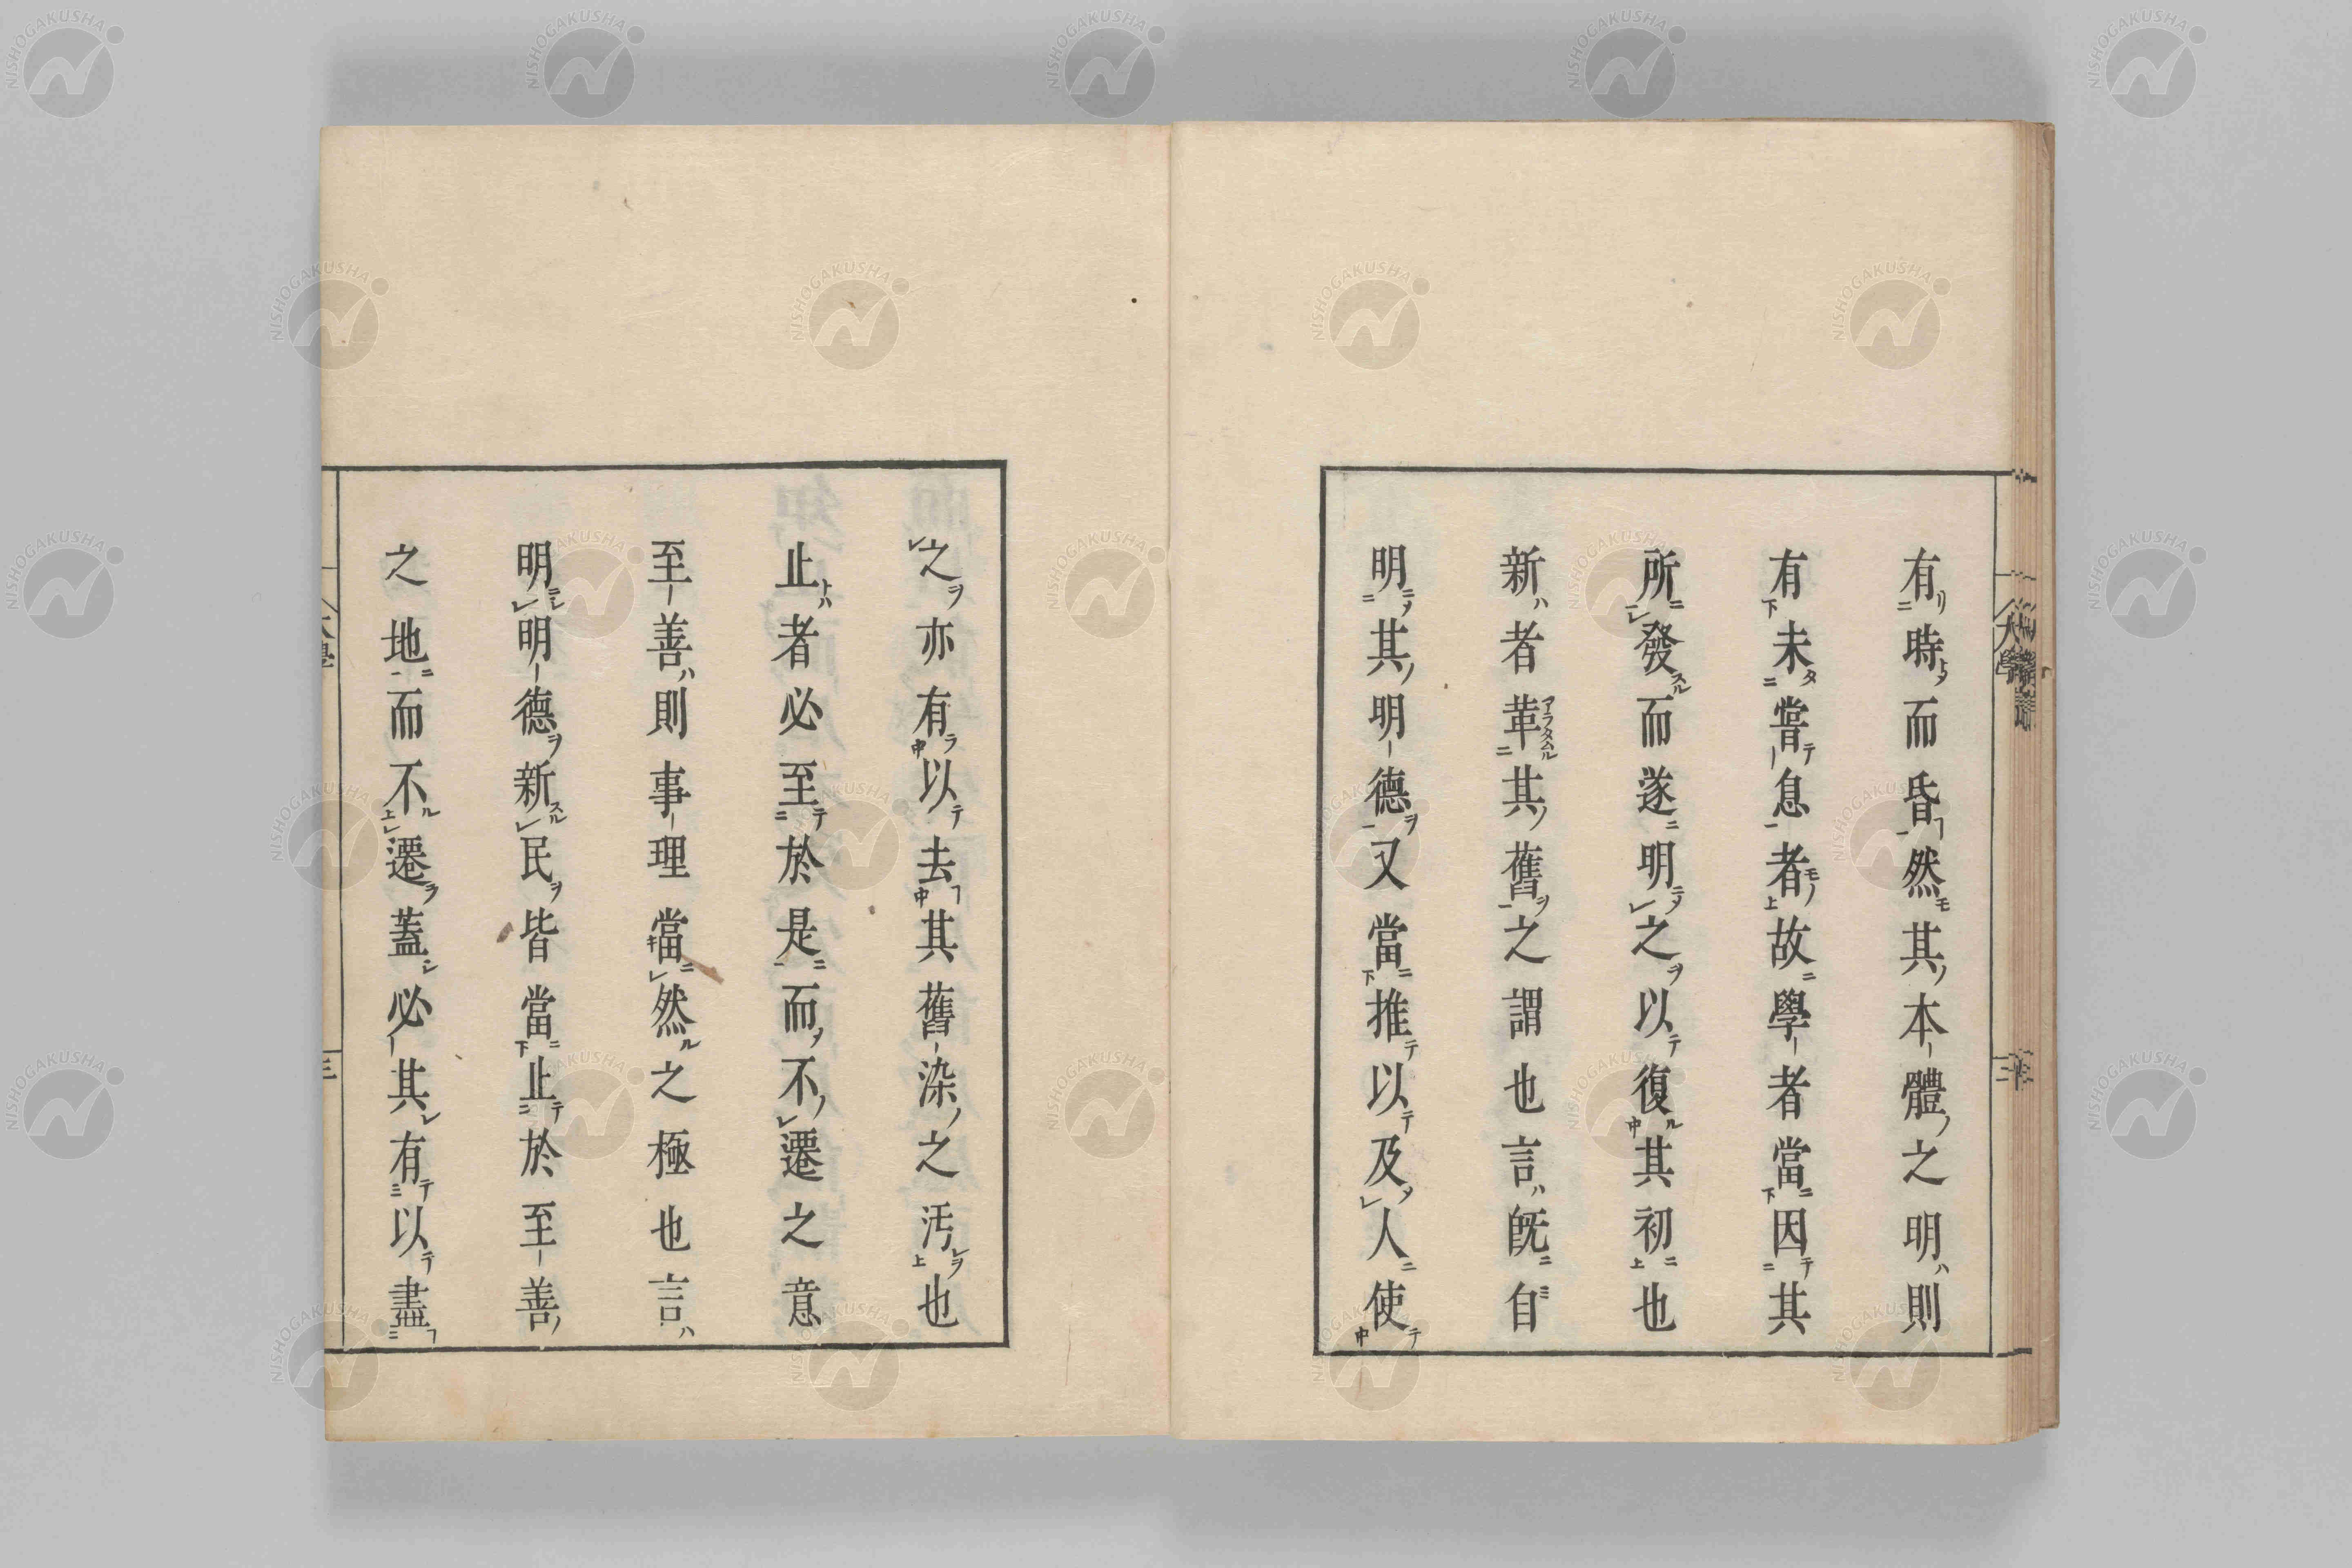 有時而昏然其本體之明則
有未嘗息者故學者當因其
所發而遂明之以復其初也
新者革其舊之謂也言既自
明其明德又當推以及人使
之亦有以去其舊染之汚也
止者必至於是而不遷之意
至善則事理當然之極也言
明明德新民皆當止於至善
之地而不遷蓋必其有以盡
大學
三
NISHOGAKUSHA